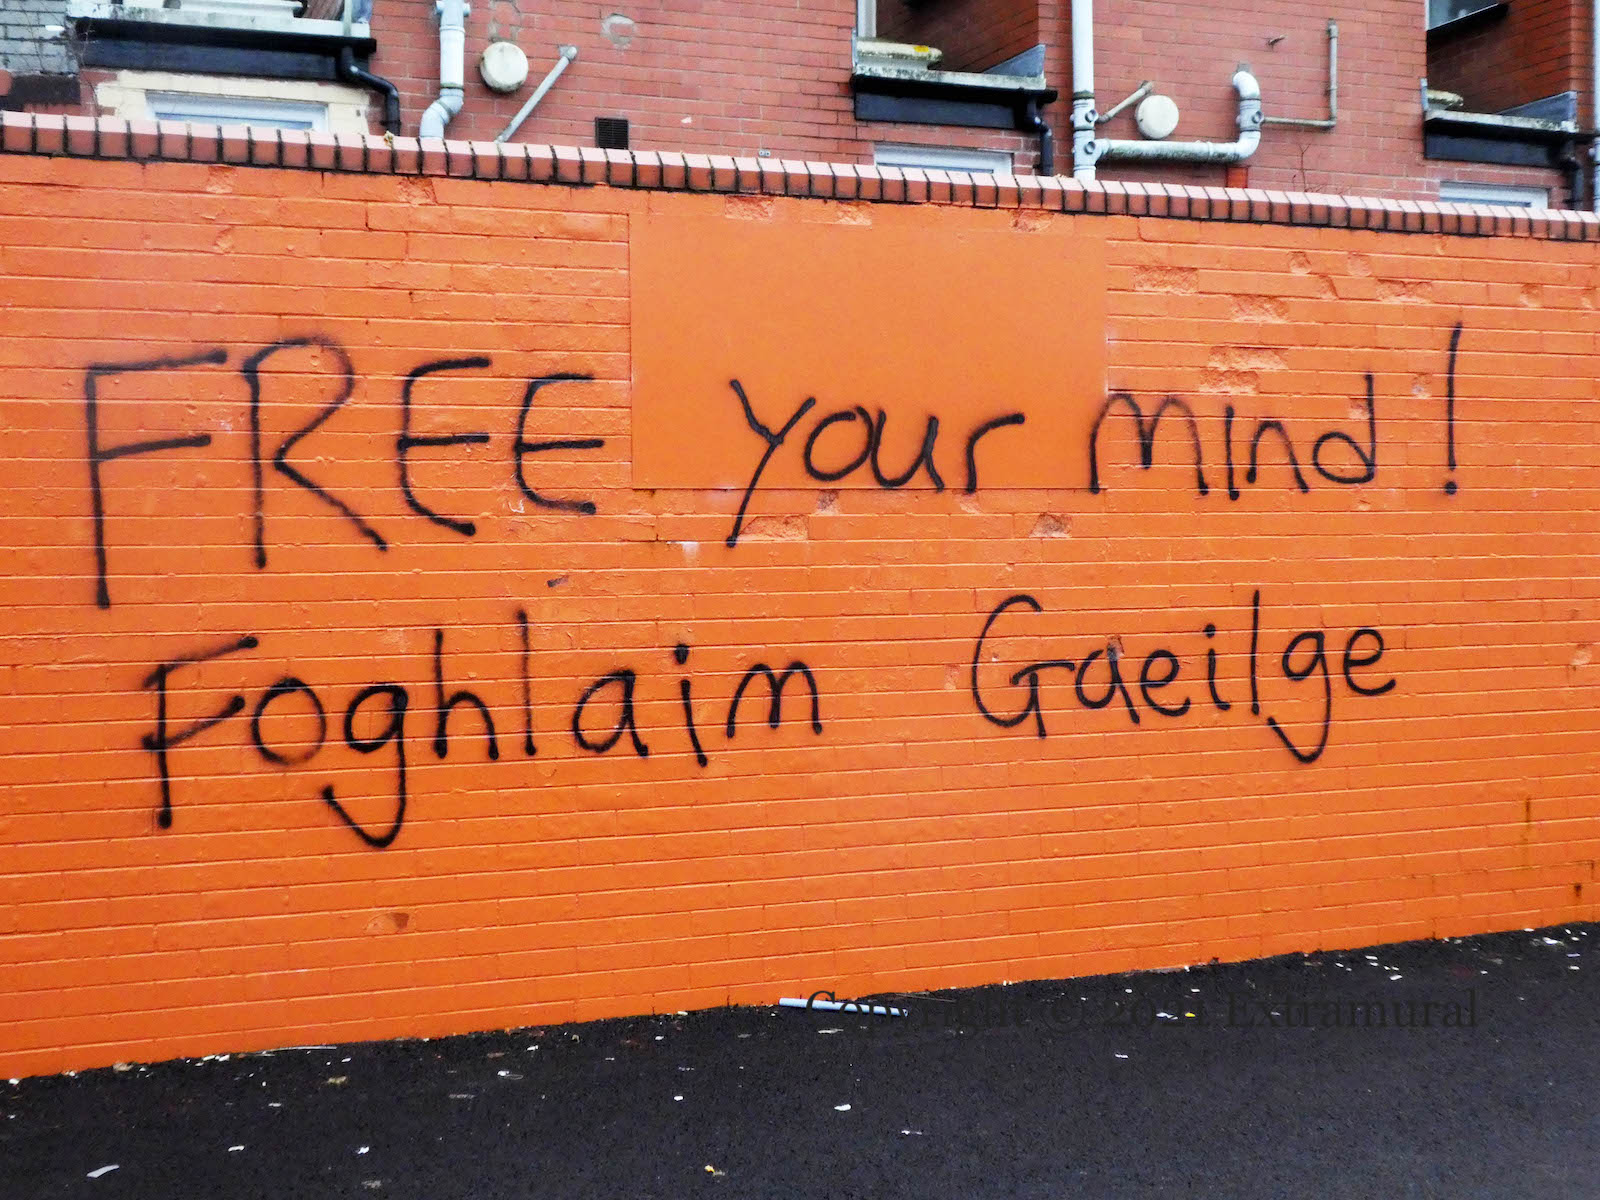 FREE your mind!
Foghlaim Gaeilge
Copyright © 2021 Extramural